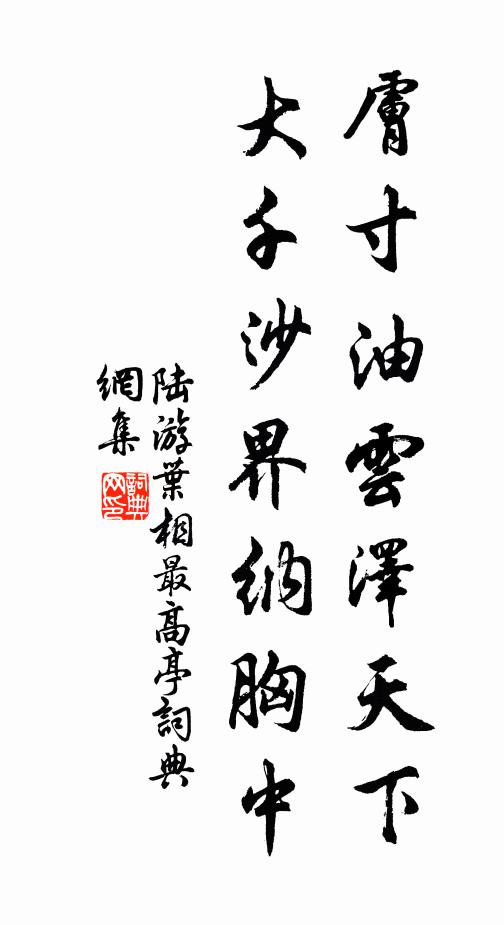 膚寸油雲澤天下
大千沙界納胸中
陆游葉相最高亭詞典
網集
詞典
网印